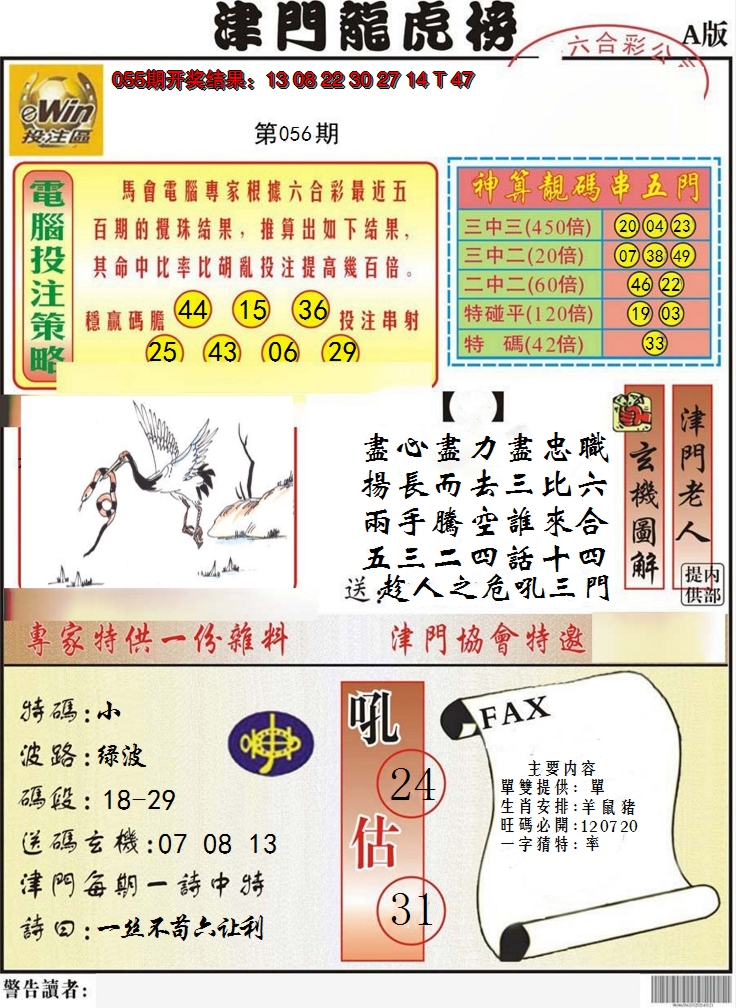 津門龍虎榜
A版
六合彩公
055期开奖结果：13 08 22 30 27 14 T 47
eWin
投注區
第056期
電腦投注策略
馬會電腦專家根據六合彩最近五
百期的攪珠结果，推算出如下结果，
其命中比率比胡亂投注提高幾百倍。
穩贏碼膽 44 15 36 投注串射
25 43 06 29
神算靚碼串五門
三中三(450倍) 20 04 23
三中二(20倍) 07 38 49
二中二(60倍) 46 22
特碰平(120倍) 19 03
特 碼(42倍) 33
【】
盡心盡力盡忠職
揚長而去三比六
兩手騰空誰來合
五三二四話十四
送:趁人之危吼三門
玄機圖解
津門老人
内部提供
專家特供一份雜料
津門協會特邀
特碼:小
波路:绿波
碼段:18-29
送碼玄機:07 08 13
津門每期一詩中特
詩曰:一丝不苟六让利
吼
24
估
31
FAX
主要内容
單雙提供：單
生肖安排:羊鼠豬
旺碼必開:120720
一字猜特:率
警告讀者：